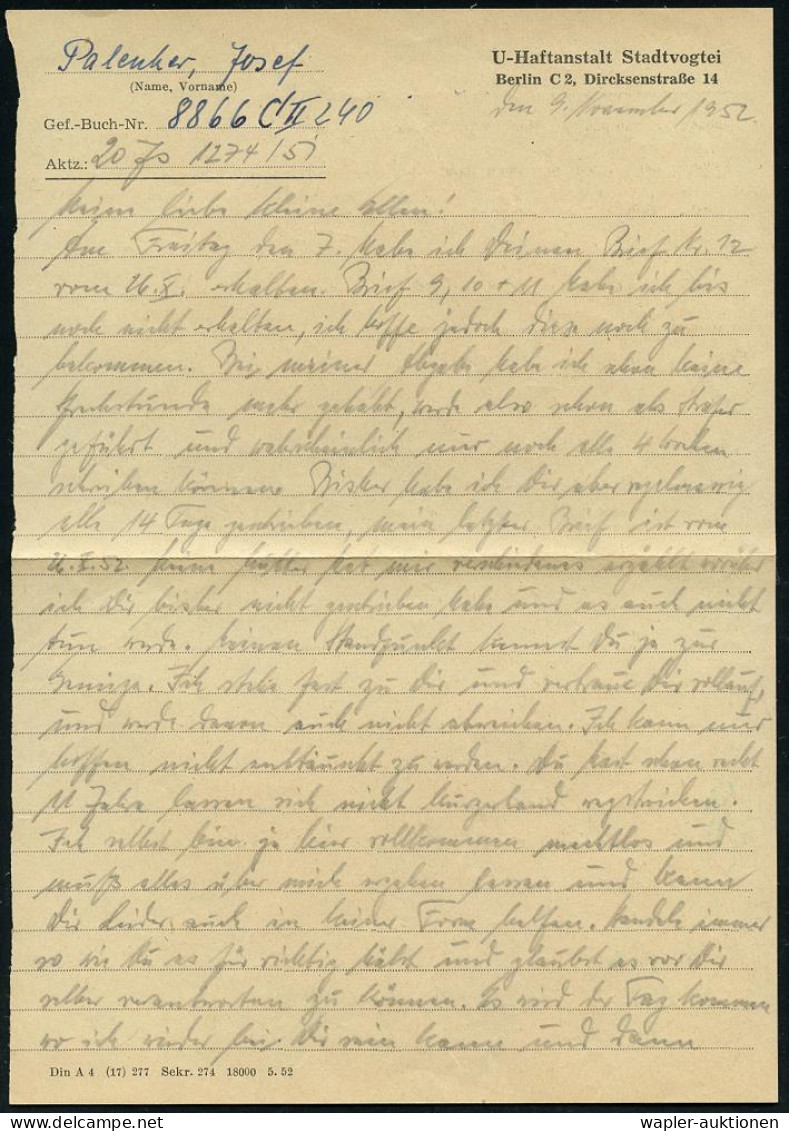 Palenker, Josef
(Name, Vorname)
U-Haftanstalt Stadtvogtei
Berlin C 2, Dircksenstraße 14
Gef.-Buch-Nr. 8866 C II 240
den 9. November 1952
Aktz.: 20 Js 1274/51
Meine liebe kleine Ellen!
Am Freitag den 7. habe ich Deinen Brief Nr. 12
vom 26.X. erhalten. Brief 9, 10 + 11 habe ich bis
noch nicht erhalten, ich hoffe jedoch diese noch zu
bekommen. Bei meiner habe ich schon keine
Sprechstunde mehr gehabt, werde also schon als
geführt und wahrscheinlich nur noch alle 4 Wochen
schreiben können. Bisher habe ich Dir aber regelmässig
alle 14 Tage geschrieben, mein letzter Brief ist vom
26.X.52. Meine Mutter hat mir verschiedenes erzählt worüber
ich Dir bisher nicht geschrieben habe und es auch nicht
tun werde. Meinen Standpunkt kennst Du ja zur
Genüge. Ich stehe fest zu Dir und vertraue Dir vollauf,
und werde davon auch nicht abweichen. Ich kann nur
hoffen nicht enttäuscht zu werden. Du hast schon recht
11 Jahre lassen sich nicht kurzerhand wegstreichen.
Ich selbst bin ja hier vollkommen machtlos und
muß alles über mich ergehen lassen und kann
Dir leider auch in keiner Form helfen. Handele immer
so wie Du es für richtig hälst und glaubst es vor Dir
selber verantworten zu können. Es wird der Tag kommen
wo ich wieder bei Dir sein kann und dann
Din A 4 (17) 277 Sekr. 274 18000 5. 52
wapler-auktionen